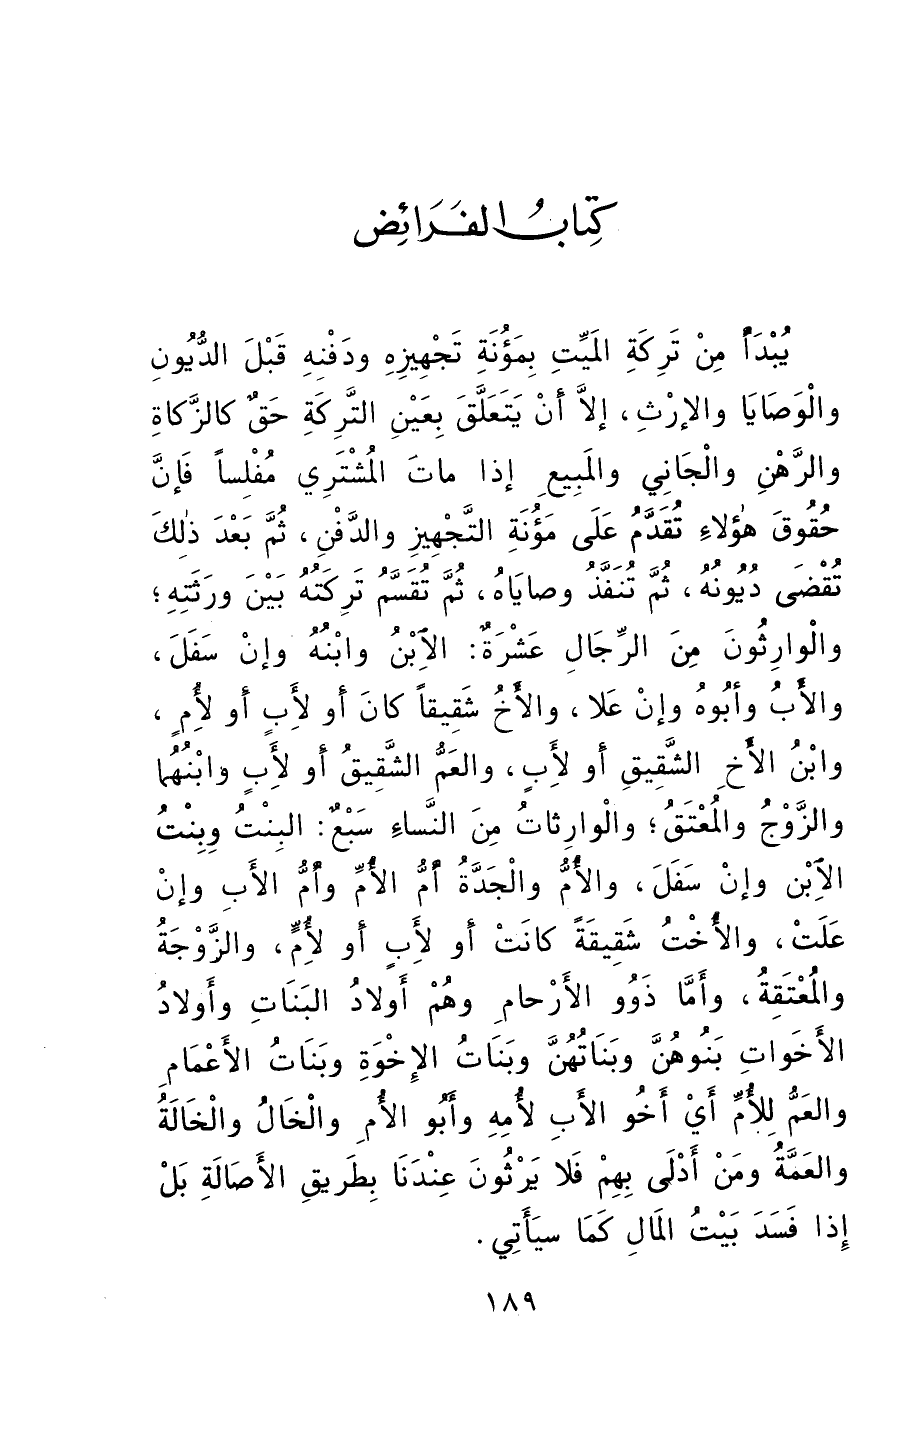 كِتابُ الفَرَائِض
يُبْدَأُ مِنْ تَرِكَةِ المَيِّتِ بِمَؤُنَةِ تَجْهِيزِهِ ودَفْنِهِ قَبْلَ الدُّيُونِ
والْوَصَايَا والإرْثِ، إلاَّ أَنْ يَتَعَلَّقَ بِعَيْنِ التَّرِكَةِ حَقٌ كالزَّكاةِ
والرَّهْنِ والْجَانِي والمَبِيعِ إذا ماتَ المُشْتَرِي مُفْلِساً فَإنَّ
حُقُوقَ هؤُلاءِ تُقَدَّمُ عَلَى مَؤُنَةِ التَّجْهِيزِ والدَّفْنِ، ثُمَّ بَعْدَ ذٰلِكَ
تُقْضَى دُيُونُهُ، ثُمَّ تُنَفَّذُ وصايَاهُ، ثُمَّ تُقَسَّمُ تَرِكَتُهُ بَيْنَ ورَثَتِهِ؛
والْوارِثُونَ مِنَ الرِّجَالِ عَشْرَةٌ: الاِبْنُ وابْنُهُ وإنْ سَفَلَ،
والأَبُ وأبُوهُ وإنْ عَلا، والأَخُ شَقِيقاً كانَ أو لأَبٍ أو لأُمٍ،
وابْنُ الأَخِ الشَّقِيقِ أو لأَبٍ، والعَمُّ الشَّقِيقُ أو لأَبٍ وابْنُهُما
والزَّوْجُ والمُعْتَقُ؛ والْوارِثاتُ مِنَ النَّساءِ سَبْعٌ: البِنْتُ وبِنْتُ
الاِبْن وإنْ سَفَلَ، والأُمُّ والْجَدَّةُ أُمُّ الأُمِّ وأُمُّ الأَبِ وإنْ
عَلَتْ، والأُخْتُ شَقِيقَةً كانَتْ أو لأَبٍ أو لأُمٍّ، والزَّوْجَةُ
والمُعْتَقِةُ، وأَمَّا ذَوُو الأَرْحامِ وهُمْ أَولادُ البَنَاتِ وأَولادُ
الأَخَواتِ بَنُوهُنَّ وبَنَاتُهُنَّ وبَنَاتُ الإِخْوَةِ وبَنَاتُ الأَعْمَامِ
والعَمُّ لِلأُمِّ أَيْ أَخُو الأَبِ لأُمِهِ وأَبُو الأُمِ والْخَالُ والْخَالَةُ
والعَمَّةُ ومَنْ أَدْلَى بِهِمْ فَلا يَرْثُونَ عِنْدَنَا بِطَرِيقِ الأَصَالَةِ بَلْ
إِذا فَسَدَ بَيْتُ المَالِ كَمَا سيَأَتِي.
١٨٩